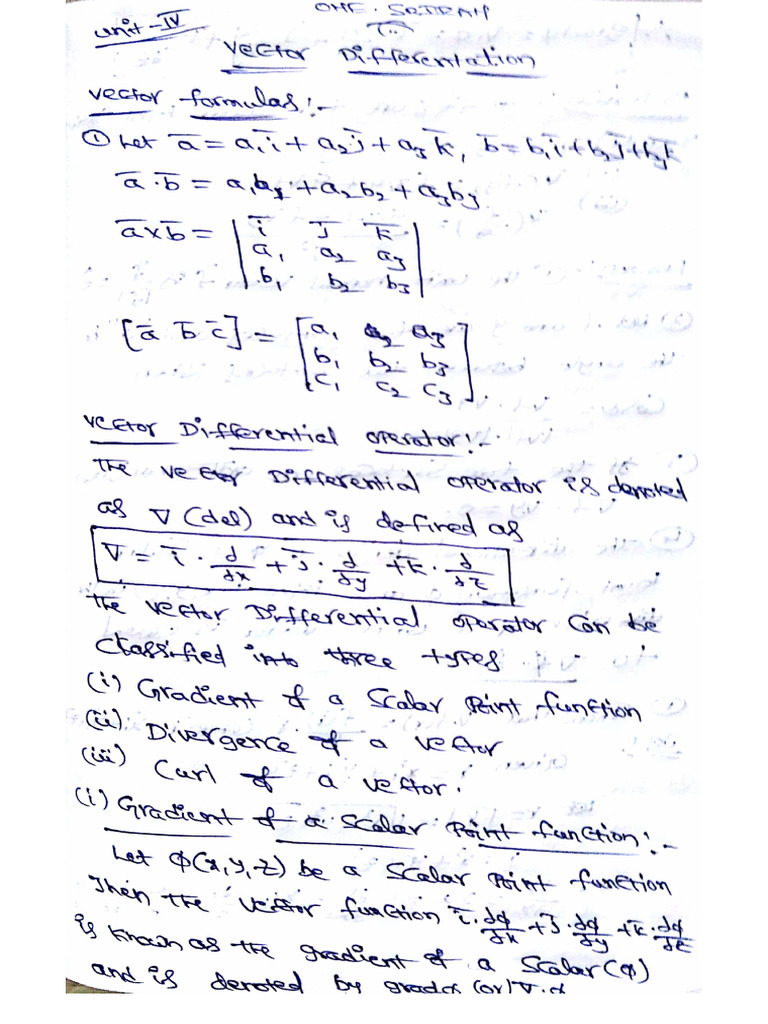 OHE. SRIRAM
unit-IV
Vector Differentation
vector formulas:-
① Let a̅ = a₁i̅ + a₂j̅ + a₃k̅, b̅ = b₁i̅ + b₂j̅ + b₃k̅
a̅ · b̅ = a₁b₁ + a₂b₂ + a₃b₃
a̅ x b̅ = | i̅ j̅ k̅ |
| a₁ a₂ a₃ |
| b₁ b₂ b₃ |
[a̅ b̅ c̅] = [ a₁ a₂ a₃ ]
[ b₁ b₂ b₃ ]
[ c₁ c₂ c₃ ].
Vector Differential operator:-
The vector Differential operator is denoted
as ∇ (del) and is defined as
∇ = i̅ · ∂/∂x + j̅ · ∂/∂y + k̅ · ∂/∂z
The vector Differential operator can be
classified into three types
(i) Gradient of a Scalar Point function
(ii) Divergence of a vector
(iii) Curl of a vector.
(i) Gradient of a Scalar Point function:-
Let φ(x,y,z) be a Scalar Point function
Then the vector function i̅ · ∂φ/∂x + j̅ · ∂φ/∂y + k̅ · ∂φ/∂z
is known as the gradient of a Scalar (φ)
and is denoted by grad φ (or) ∇.φ